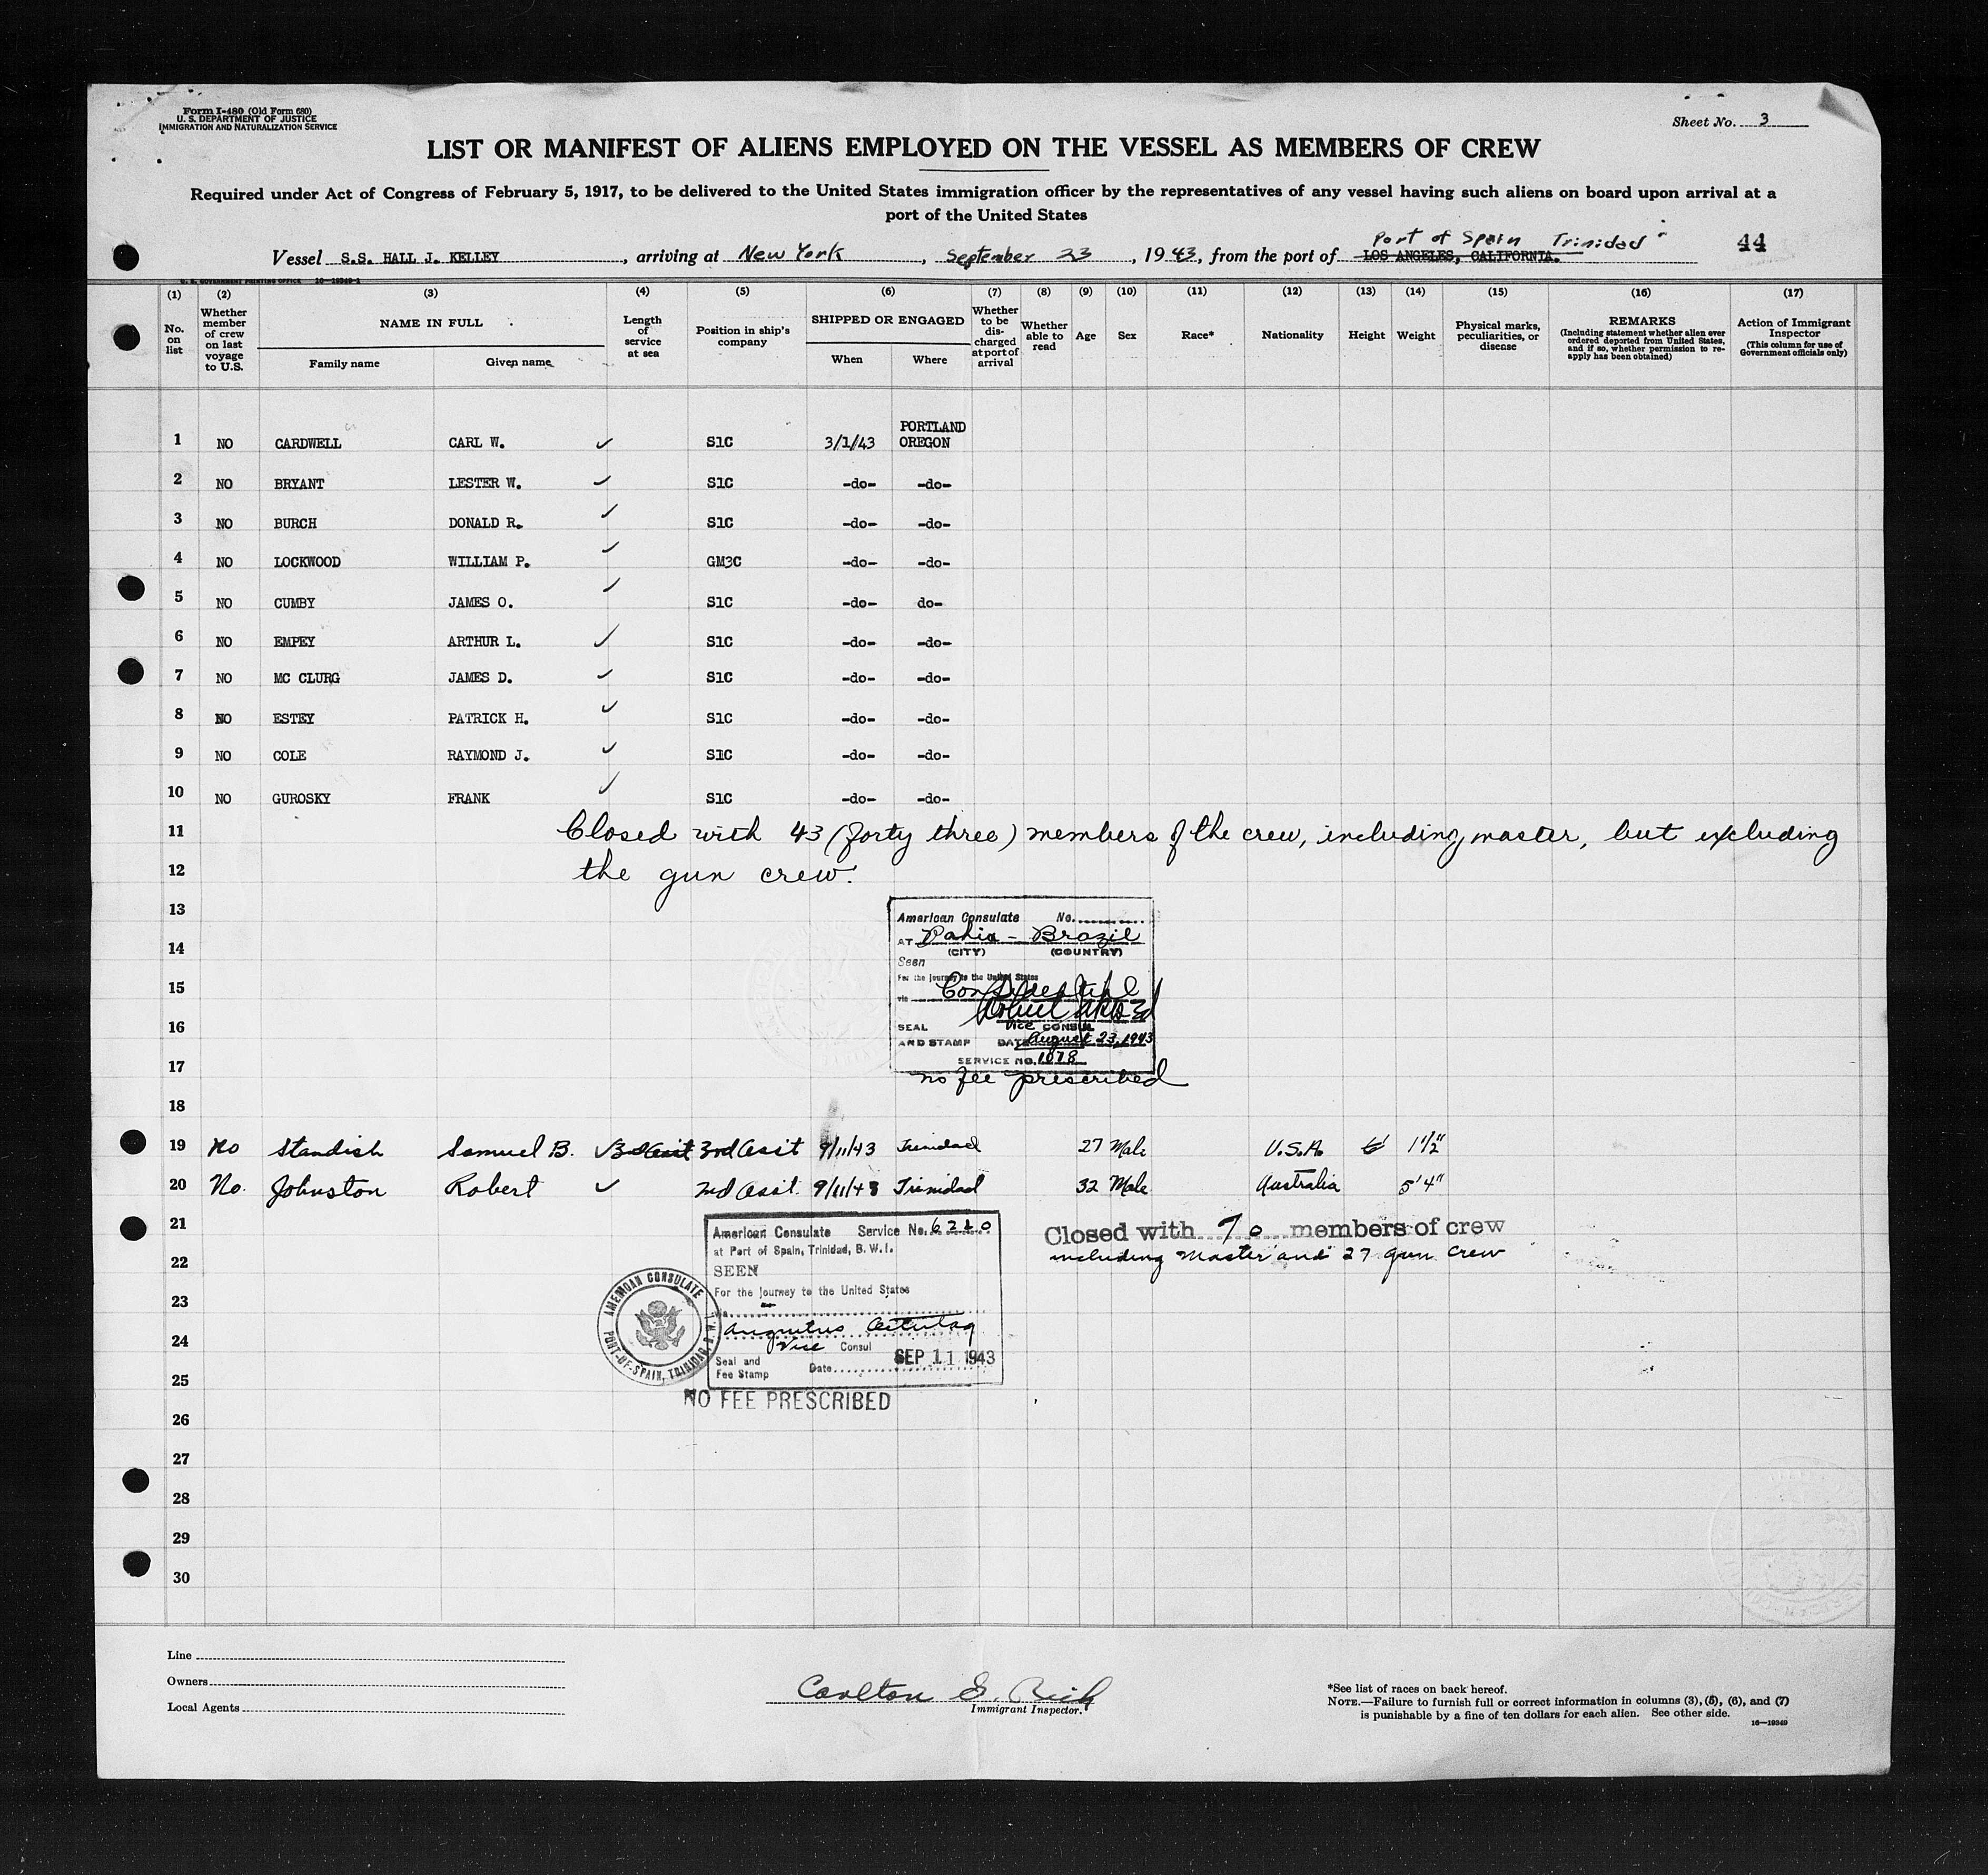 Form I-480 (Old Form 680)
U. S. DEPARTMENT OF JUSTICE
IMMIGRATION AND NATURALIZATION SERVICE
Sheet No. 3
LIST OR MANIFEST OF ALIENS EMPLOYED ON THE VESSEL AS MEMBERS OF CREW
Required under Act of Congress of February 5, 1917, to be delivered to the United States immigration officer by the representatives of any vessel having such aliens on board upon arrival at a
port of the United States
Port of Spain Trinidad
Vessel S.S. HALL J. KELLEY, arriving at New York, September 23, 1943, from the port of LOS ANGELES, CALIFORNIA. 44
U. S. GOVERNMENT PRINTING OFFICE 16-19349-1
(1) (2) (3) (4) (5) (6) (7) (8) (9) (10) (11) (12) (13) (14) (15) (16) (17)
No. on list
Whether member of crew on last voyage to U.S.
NAME IN FULL
Family name Given name
Length of service at sea
Position in ship's company
SHIPPED OR ENGAGED
When Where
Whether to be discharged at port of arrival
Whether able to read
Age
Sex
Race*
Nationality
Height
Weight
Physical marks, peculiarities, or disease
REMARKS
(Including statement whether alien ever ordered deported from United States, and if so, whether permission to reapply has been obtained)
Action of Immigrant Inspector
(This column for use of Government officials only)
1 NO CARDWELL CARL W. ✓ S1C 3/1/43 PORTLAND OREGON
2 NO BRYANT LESTER W. ✓ S1C -do- -do-
3 NO BURCH DONALD R. ✓ S1C -do- -do-
4 NO LOCKWOOD WILLIAM P. ✓ GM3C -do- -do-
5 NO CUMBY JAMES O. ✓ S1C -do- do-
6 NO EMPEY ARTHUR L. ✓ S1C -do- -do-
7 NO MC CLURG JAMES D. ✓ S1C -do- -do-
8 NO ESTEY PATRICK H. ✓ S1C -do- -do-
9 NO COLE RAYMOND J. ✓ S1C -do- -do-
10 NO GUROSKY FRANK ✓ S1C -do- -do-
11 Closed with 43 (forty three) members of the crew, including master, but excluding
12 the gun crew.
13
American Consulate No.
14
AT Bahia - Brazil
(CITY) (COUNTRY)
Seen
For the journey to the United States
15
via Confidential
16
SEAL Vice CONSUL
AND STAMP DATE August 23, 1943
SERVICE NO. 1078
17
no fee prescribed
18
19 No Standish Samuel B. ✓ 3rd Asst 3rd Asst 9/11/43 Trinidad 27 Male U.S.A. 6' 1 1/2"
20 No. Johnston Robert ✓ 2nd Asst. 9/11/43 Trinidad 32 Male Australia 5' 4"
21
American Consulate Service No. 6210
at Port of Spain, Trinidad, B. W. I.
Closed with 70 members of crew
including Master and 27 gun crew
22
SEEN
For the journey to the United States
23
Via
24
Vice Consul
Seal and Fee Stamp Date SEP 11 1943
AMERICAN CONSULATE
PORT-OF-SPAIN, TRINIDAD, B.W.I.
25
NO FEE PRESCRIBED
26
27
28
29
30
Line
Owners
Local Agents
Carlton G. Rich
Immigrant Inspector.
*See list of races on back hereof.
NOTE.—Failure to furnish full or correct information in columns (3), (5), (6), and (7)
is punishable by a fine of ten dollars for each alien. See other side.
16—19349